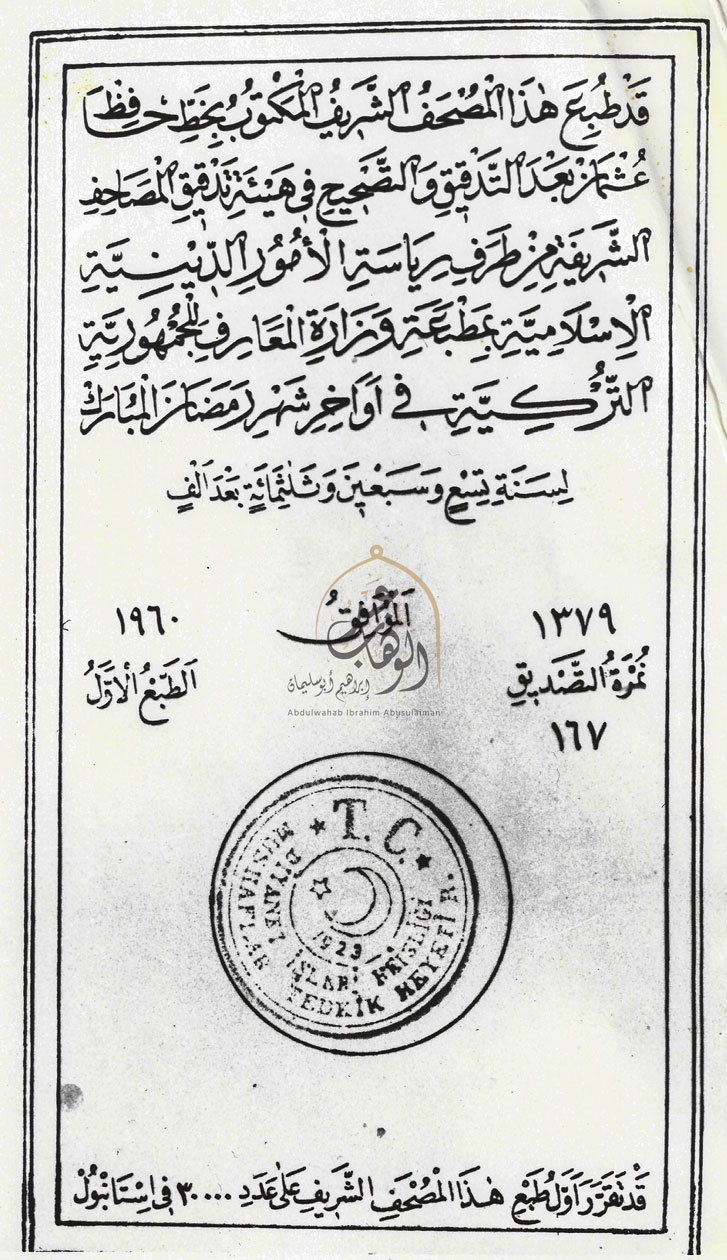 قَدْ طُبِعَ هٰذَا الْمُصْحَفُ الشَّرِيفُ الْمَكْتُوبُ بِخَطِّ حَافِظْ
عُثْمَانْ بَعْدَ التَّدْقِيقِ وَالتَّصْحِيحِ فِي هَيْئَةِ تَدْقِيقِ الْمَصَاحِفِ
الشَّرِيفَةِ مِنْ طَرَفِ رِيَاسَةِ الْأُمُورِ الدِّينِيَّةِ
الْاِسْلَامِيَّةِ بِمَطْبَعَةِ وَزَارَةِ الْمَعَارِفِ لِلْجُمْهُورِيَّةِ
التُّرْكِيَّةِ فِي اَوَاخِرِ شَهْرِ رَمَضَانَ الْمُبَارَكْ
لِسَنَةِ تِسْعٍ وَسَبْعِينَ وَثَلٰثِمِائَةٍ بَعْدَ اَلْفٍ
١٣٧٩ اَلْمُوَافِقُ ١٩٦٠
نُمْرَةُ التَّصْدِيقِ الطَّبْعُ الْاَوَّلُ
١٦٧
الوهاب
إبراهيم أبو سليمان
Abdulwahab Ibrahim Abusulaiman
T. C.
MUSHAFLAR TEDKİK HEYETİ R.
DİYANET İŞLERİ REİSLİĞİ
1923
قَدْ تَقَرَّرَ اَوَّلُ طَبْعِ هٰذَا الْمُصْحَفِ الشَّرِيفِ عَلٰى عَدَدِ ٣٠٠٠٠ فِي اِسْتَانْبُولْ